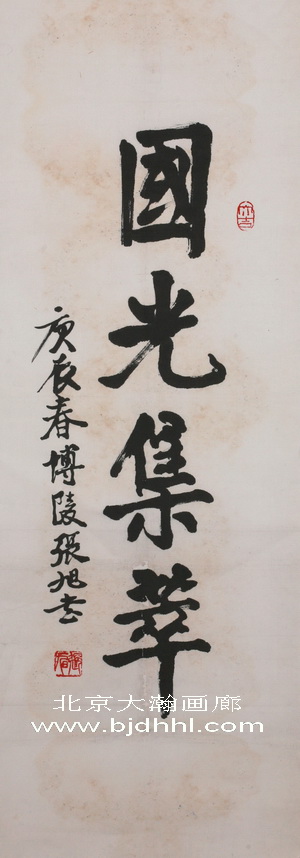 國光集萃
庚辰春博陵張旭書
大吉
北京大瀚画廊
www.bjdhhl.com